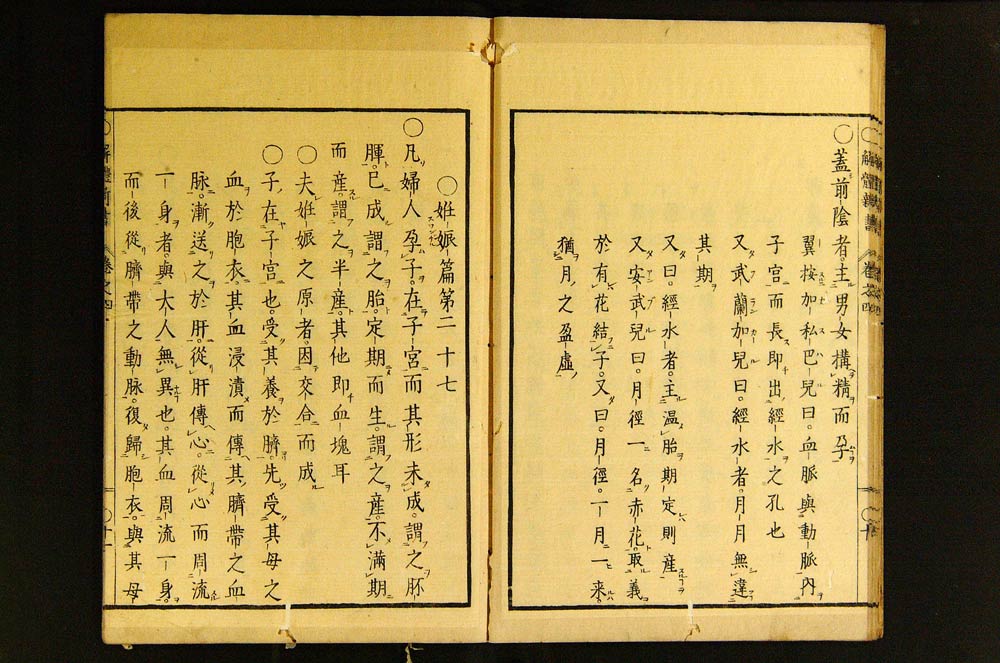 解體新書 卷之四
〇蓋前陰者。主男女構精而孕
翼按加私巴兒曰。血脈與動脈內
子宮而長即出經水之孔也
又武蘭加兒曰。經水者。月月無違
其期
又曰。經水者。主溫胎期定則産
又安武兒曰。月經一名赤花。取義
於有花結子。又曰。月經。一月一来。
猶月之盈虛
〇姙娠篇第二十七
〇凡婦人孕子。在子宮而其形未成。謂之胚
腪。已成謂之胎。定期而生。謂之産。不滿期
而産。謂之半産。其他即血塊耳
〇夫姙娠之原者。因交合而成
〇子在子宮也。受其養於臍。先受其母之
血於胞衣。其血浸漬而傳其臍帶之血
脉。漸送之於肝。從肝傳心。從心而周流
一身者。與大人無異也。其血周流一身。
而後從臍帶之動脉。復歸胞衣。與其母
解體新書 卷之四
〇十一